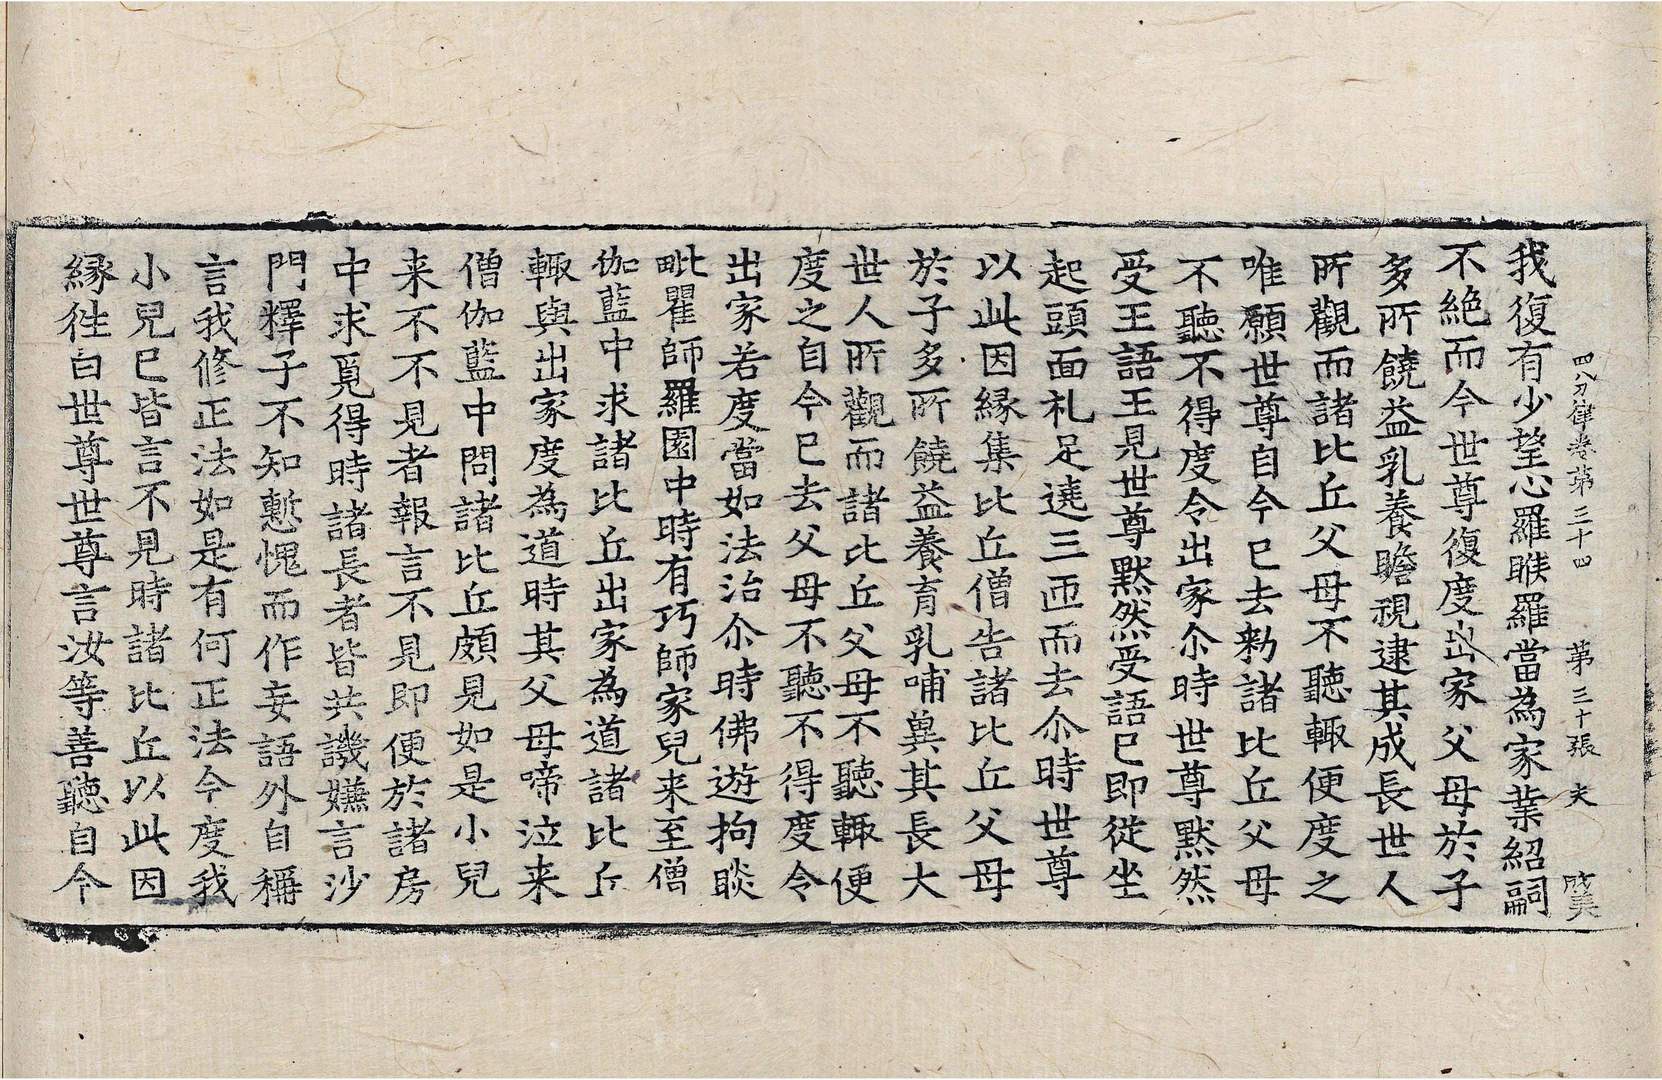 四分律卷第三十四　第三十張　夫
我復有少望心羅睺羅當為家業紹嗣
不絶而今世尊復度出家父母於子
多所饒益乳養瞻視逮其成長世人
所觀而諸比丘父母不聽輙便度之
唯願世尊自今已去勑諸比丘父母
不聽不得度令出家尒時世尊黙然
受王語王見世尊黙然受語已即從坐
起頭面礼足遶三匝而去尒時世尊
以此因緣集比丘僧告諸比丘父母
於子多所饒益養育乳哺兾其長大
世人所觀而諸比丘父母不聽輙便
度之自今已去父母不聽不得度令
出家若度當如法治尒時佛遊拘睒
毗瞿師羅園中時有巧師家兒来至僧
伽藍中求諸比丘出家為道諸比丘
輙與出家度為道時其父母啼泣来
僧伽藍中問諸比丘頗見如是小兒
来不不見者報言不見即便於諸房
中求覓得時諸長者皆共譏嫌言沙
門釋子不知慙愧而作妄語外自稱
言我修正法如是有何正法今度我
小兒已皆言不見時諸比丘以此因
緣徃白世尊世尊言汝等善聽自今